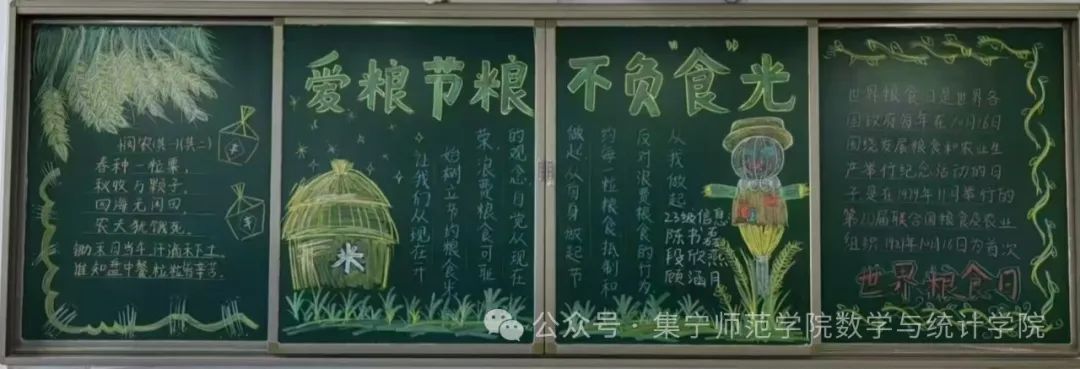 悯农(其一)(其二)
春种一粒粟,
秋收万颗子.
四海无闲田,
农夫犹饿死.
锄禾日当午,汗滴禾下土.
谁知盘中餐,粒粒皆辛苦.
米
爱粮节粮
不负"食"光
让我们从现在开
始树立节约粮食光
荣,浪费粮食可耻
的观念,自觉从现在
米
做起从自身做起节
约每一粒粮食抵制和
反对浪费粮食的行为
从我做起
23级信息
陈书
段欣燕
顾涵月
世界粮食日是世界各
国政府每年在10月16日
围绕发展粮食和农业生
产举行纪念活动的日
子是在1979年11月举行的
第20届联合国粮食及农业
组织1981年10月16日为首次
世界粮食日
公众号·集宁师范学院数学与统计学院